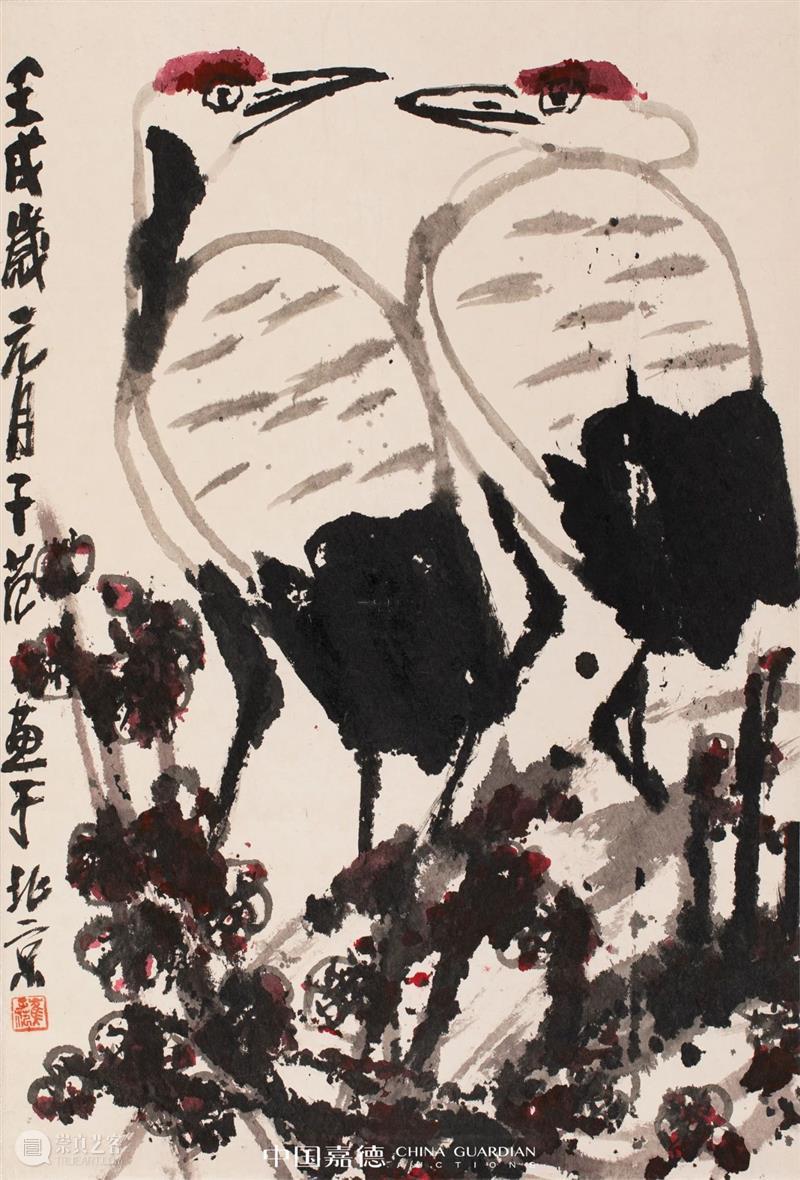 壬戌歲元月子范画于北京
崇真艺客
TRUEART.COM
中国嘉德 CHINA GUARDIAN
AUCTIONS